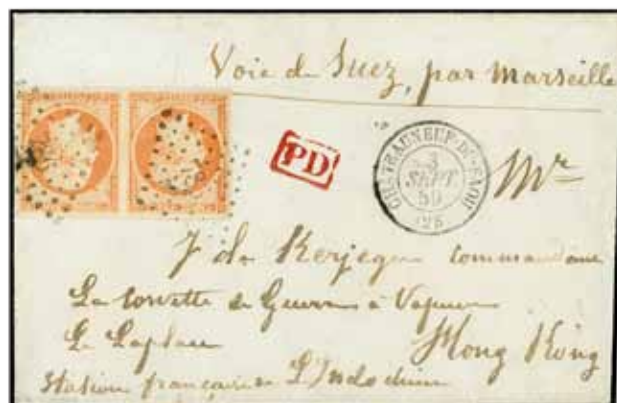 Voie de Suez, par Marseille
PD
3
SEPT.
59
(25)
Mr
J de Kerjegu Commandant
La Corvette de Guerre à Vapeur
Le Laplace
Hong Kong
Station française de L'Indochine